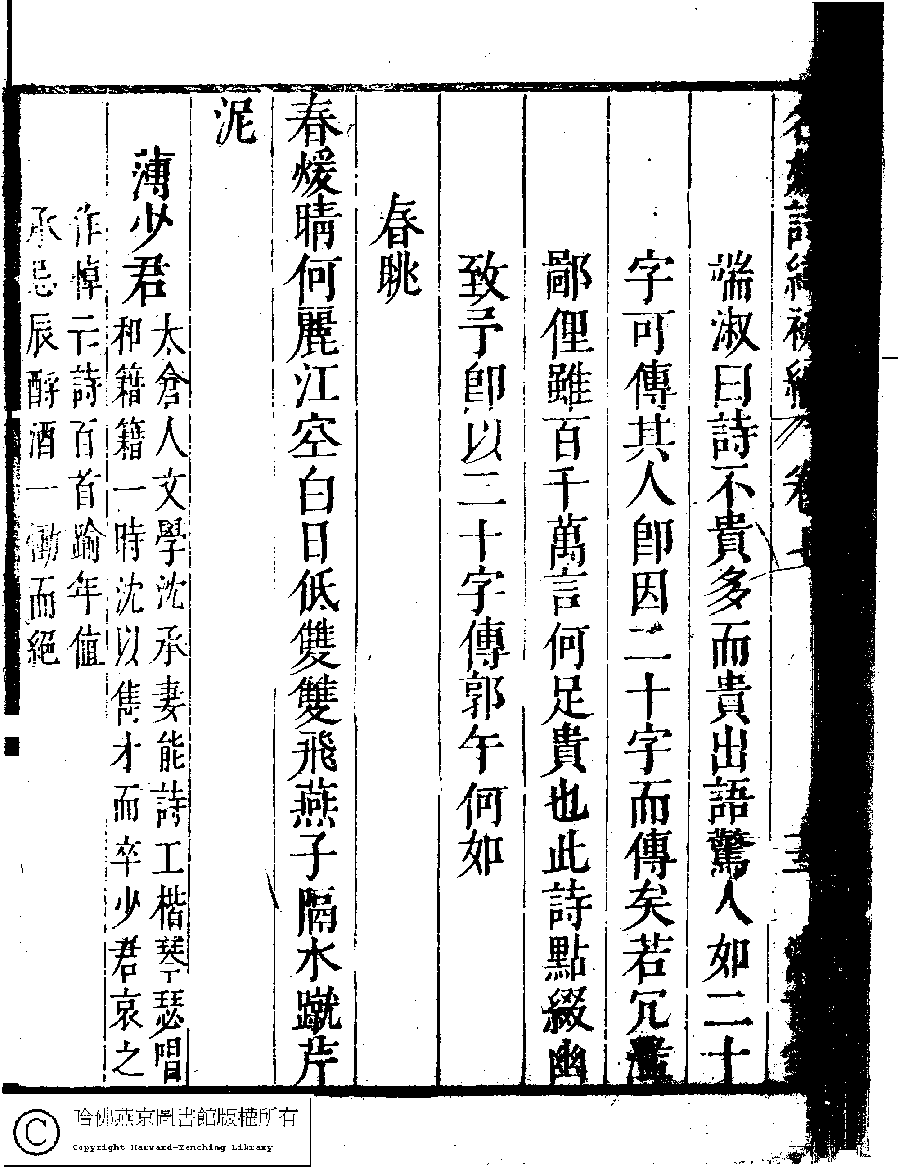 名媛詩緯初編 卷
端淑曰詩不貴多而貴出語驚人如二十
字可傳其人卽因二十字而傳矣若冗濫
鄙俚雖百千萬言何足貴也此詩點綴幽
致予卽以二十字傳郭午何如
春眺
春煖晴何麗江空白日低雙雙飛燕子隔水蹴芹
泥
薄少君
太倉人文學沈承妻能詩工楷琴瑟唱
和籍籍一時沈以雋才而卒少君哀之
作悼亡詩百首踰年值
承忌辰酹酒一慟而絕
哈佛燕京圖書館版權所有
Copyright Harvard-Yenching Library